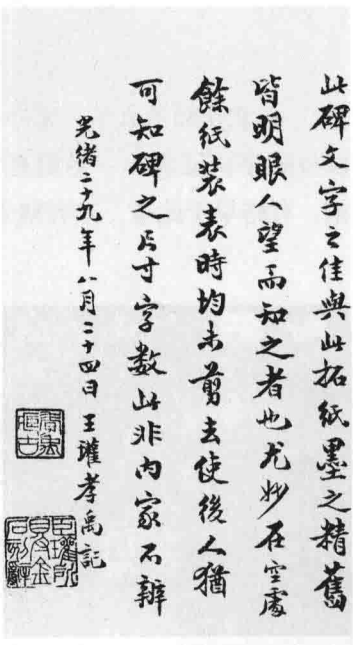 此碑文字之佳與此拓紙墨之精舊
皆明眼人望而知之者也尤妙在空處
餘紙裝表時均未剪去使後人猶
可知碑之尺寸字數此非內家不辦
光緒二十九年八月二十四日王瓘孝禹記
王瓘所
見金
石刻辭